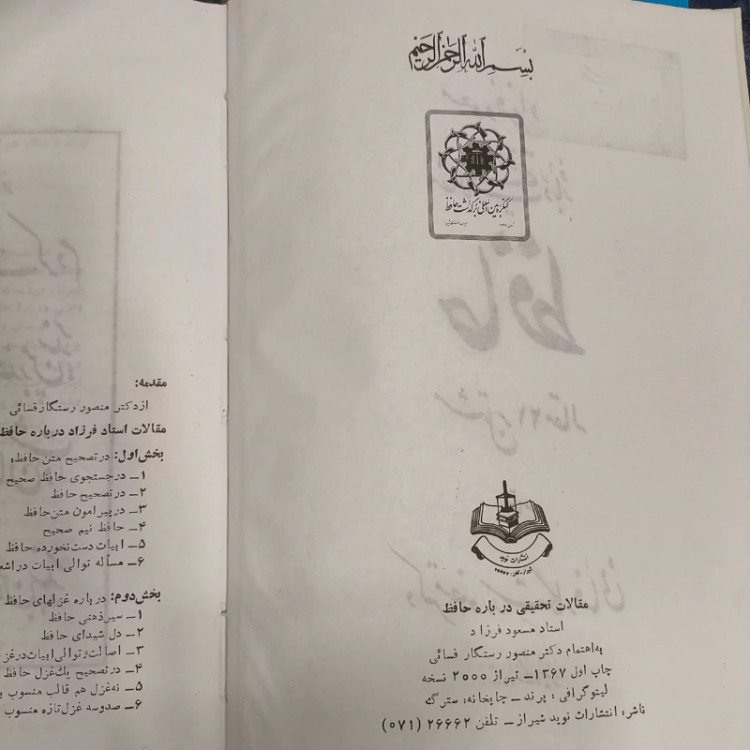 بسم الله الرحمن الرحیم
کنگره بین المللی بزرگداشت حافظ
انتشارات نوید
مقالات تحقیقی درباره حافظ
استاد مسعود فرزاد
به‌اهتمام دکتر منصور رستگار فسائی
چاپ اول ۱۳۶۷ـ تیراژ ۲۰۰۰ نسخه
لیتوگرافی: پرند ـ چاپخانه: سترگ
ناشر: انتشارات نوید شیراز ـ تلفن ۲۶۶۶۲ (۰۷۱)
مقدمه:
ازدکتر منصور رستگارفسائی
مقالات استاد فرزاد درباره حافظ
بخش اول: درتصحیح متن حافظ:
۱ـ درجستجوی حافظ صحیح
۲ـ درتصحیح حافظ
۳ـ درپیرامون متن‌حافظ
۴ـ حافظ نیم صحیح
۵ـ ابیات دست‌نخورده حافظ
۶ـ مسأله توالی ابیات
بخش‌دوم: درباره غزلهای حافظ
۱ـ سیرذهنی حافظ
۲ـ دل شیدای حافظ
۳ـ اصالت‌وتوالی‌ابیات
۴ـ درتصحیح یك‌غزل حافظ
۵ـ نه‌غزل هم قالب منسوب
۶ـ صدوسه غزل‌تازه منسوب